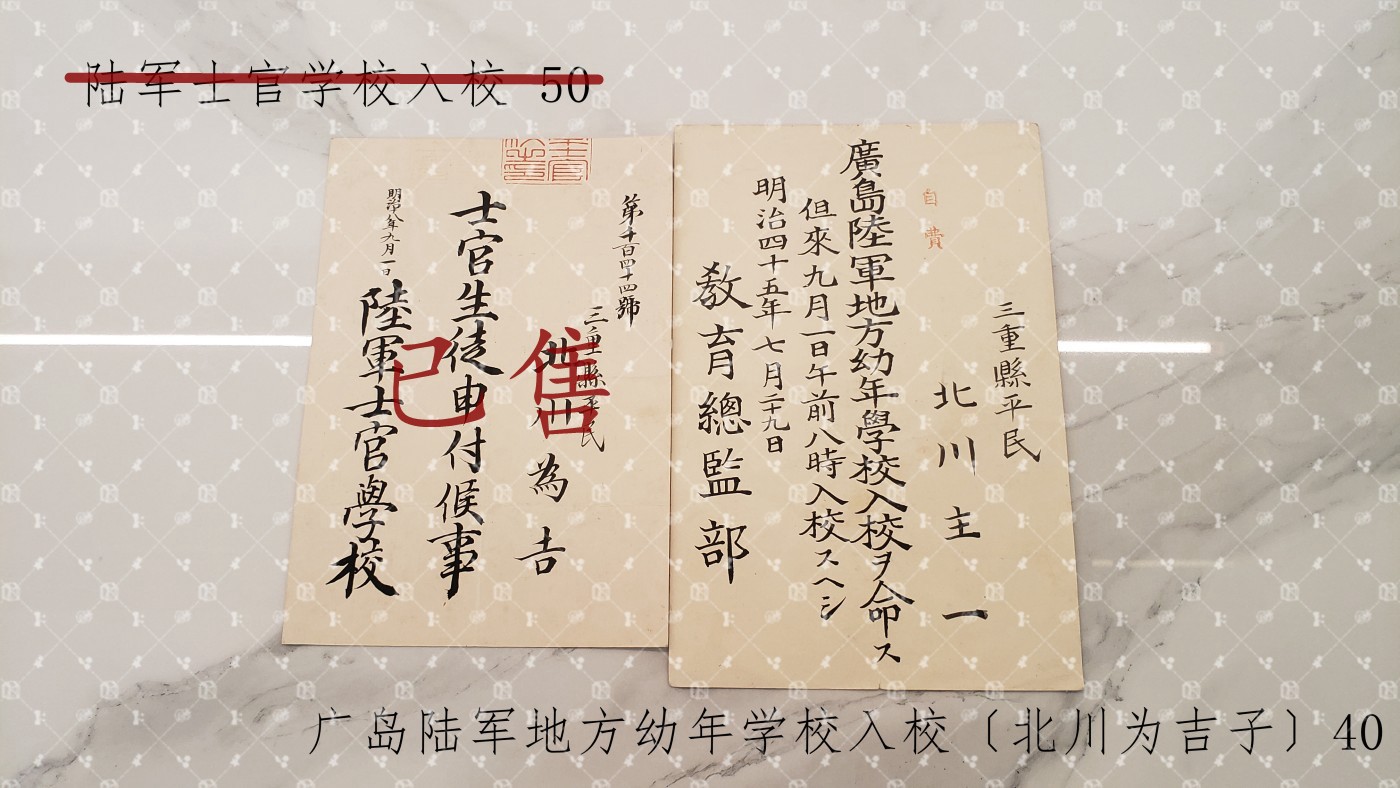 陆军士官学校入校 50
第千百四十四號
三重縣平民
北川為吉
士官生徒申付候事
明治八年九月一日
陸軍士官學校
已售
自費
三重縣平民
北川主一
廣島陸軍地方幼年學校入校ヲ命ス
但來九月一日午前八時入校スヘシ
明治四十五年七月二十九日
教育總監部
广岛陆军地方幼年学校入校〔北川为吉子〕40